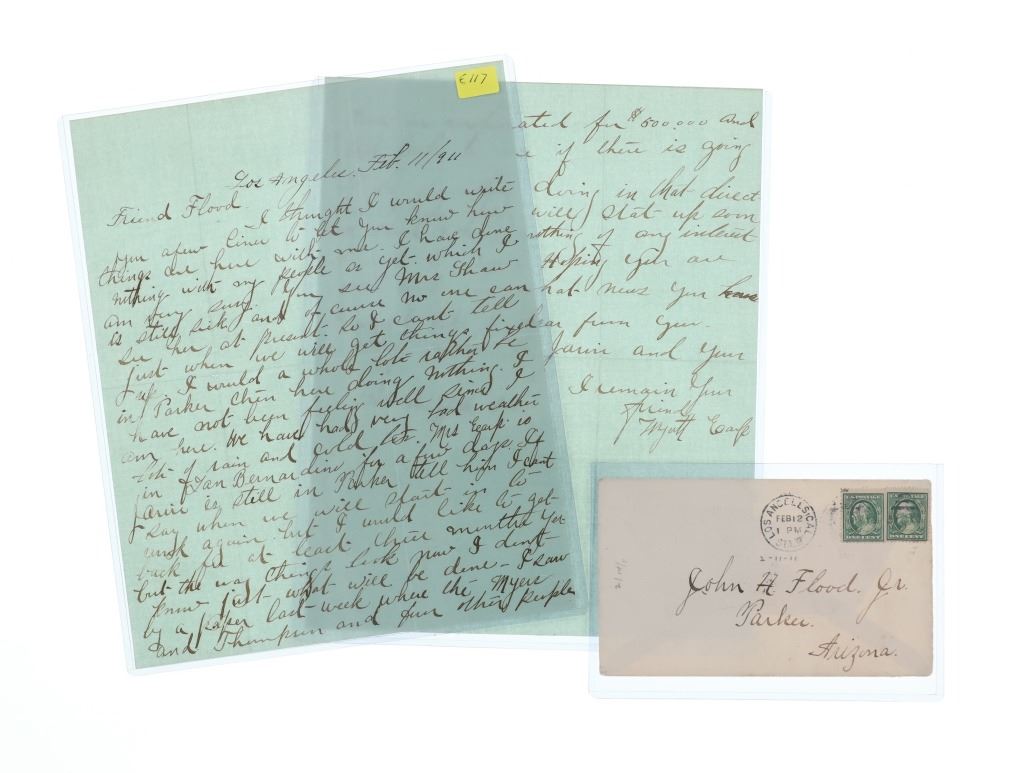 E117
Los Angeles. Feb. 11/911
Friend Flood.
I thought I would write
you a few lines to let you know how
things are here with me. I have done
nothing with my people as yet. which I
am very sorry. You see Mrs Shaw
is still sick and of cause no one can
see her at present. So I cant tell
just when we will get things fixed
up. I would a whole lots rather be
in Parker then here doing nothing. I
have not been feeling well since I
am here. We have had very bad weather
lots of rain and cold, Mrs Earp is
in San Bernardino for a few days. If
is still in Parker tell him I cant
say when we will start in to
work again. but I would like to get
back for at least three months yet
but the way things look now I dont
know just what will be done. I saw
by a paper last week where the Myers
and Thompson and four other people
ated for $500.000 and
e if there is going
doing in that direct
will stat up soon
nothing of any interest
Hoping you are
hat news you have
ear from you.
and your
I remain your
friend
Wyatt Earp
LOS ANGELES, CAL.
FEB 12
1 PM
U.S. POSTAGE
ONE CENT
U.S. POSTAGE
ONE CENT
2-11-11
John H Flood. Jr.
Parker.
Arizona.